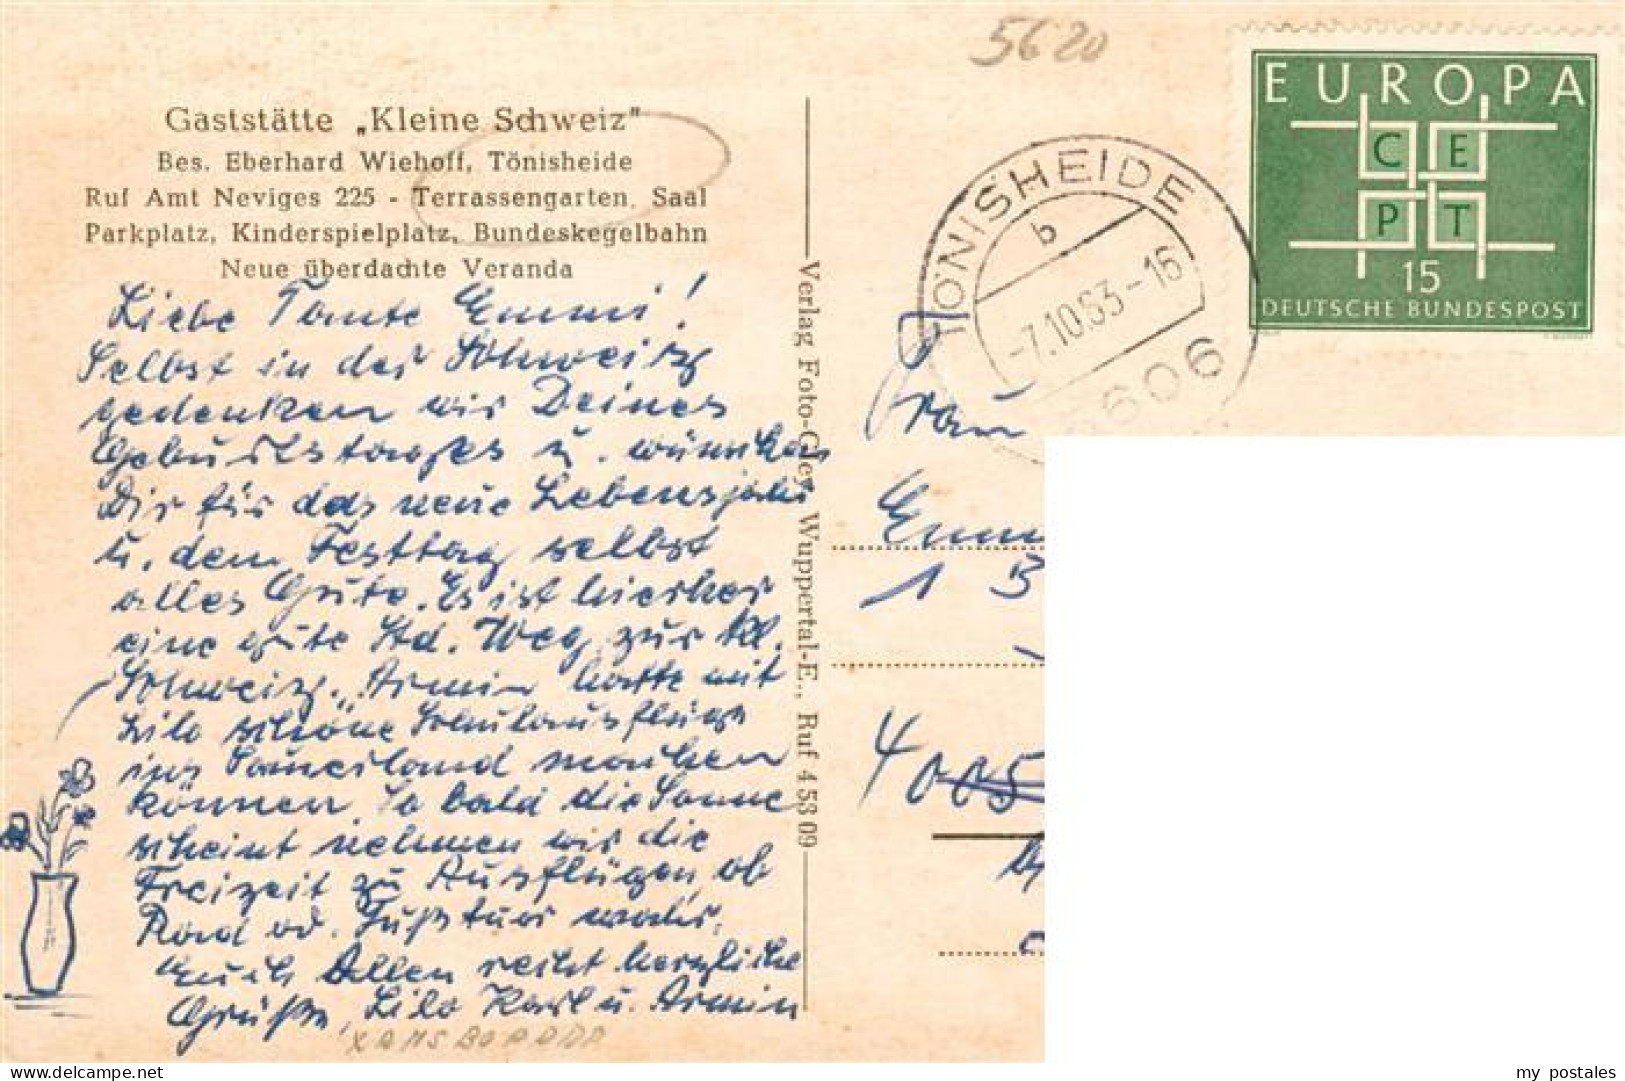 5620
EUROPA
CEPT
15
DEUTSCHE BUNDESPOST
TÖNISHEIDE
b
-7.10.63-16
5606
Gaststätte „Kleine Schweiz"
Bes. Eberhard Wiehoff, Tönisheide
Ruf Amt Neviges 225 - Terrassengarten, Saal
Parkplatz, Kinderspielplatz, Bundeskegelbahn
Neue überdachte Veranda
Liebe Tante Emmi!
Selbst in der Schweiz
gedenken wir Deines
Geburtstages u. wünschen
Dir für das neue Lebensjahr
u. dem Festtag selbst
alles Gute. Es ist hierher
eine gute Std. Weg zur Kl.
Schweiz. Armin hatte mit
Lilo schöne Schulausflüge
ins Sauerland machen
können. So bald die Sonne
scheint nehmen wir die
Freizeit zu Ausflügen, ob
Rad od. Fußtour wahr.
Euch Allen recht herzliche
Grüße, Lilo Karl u. Armin
Verlag Foto-Gley, Wuppertal-E., Ruf 4 53 09
Frau
Emm
1 B
4005
my postales